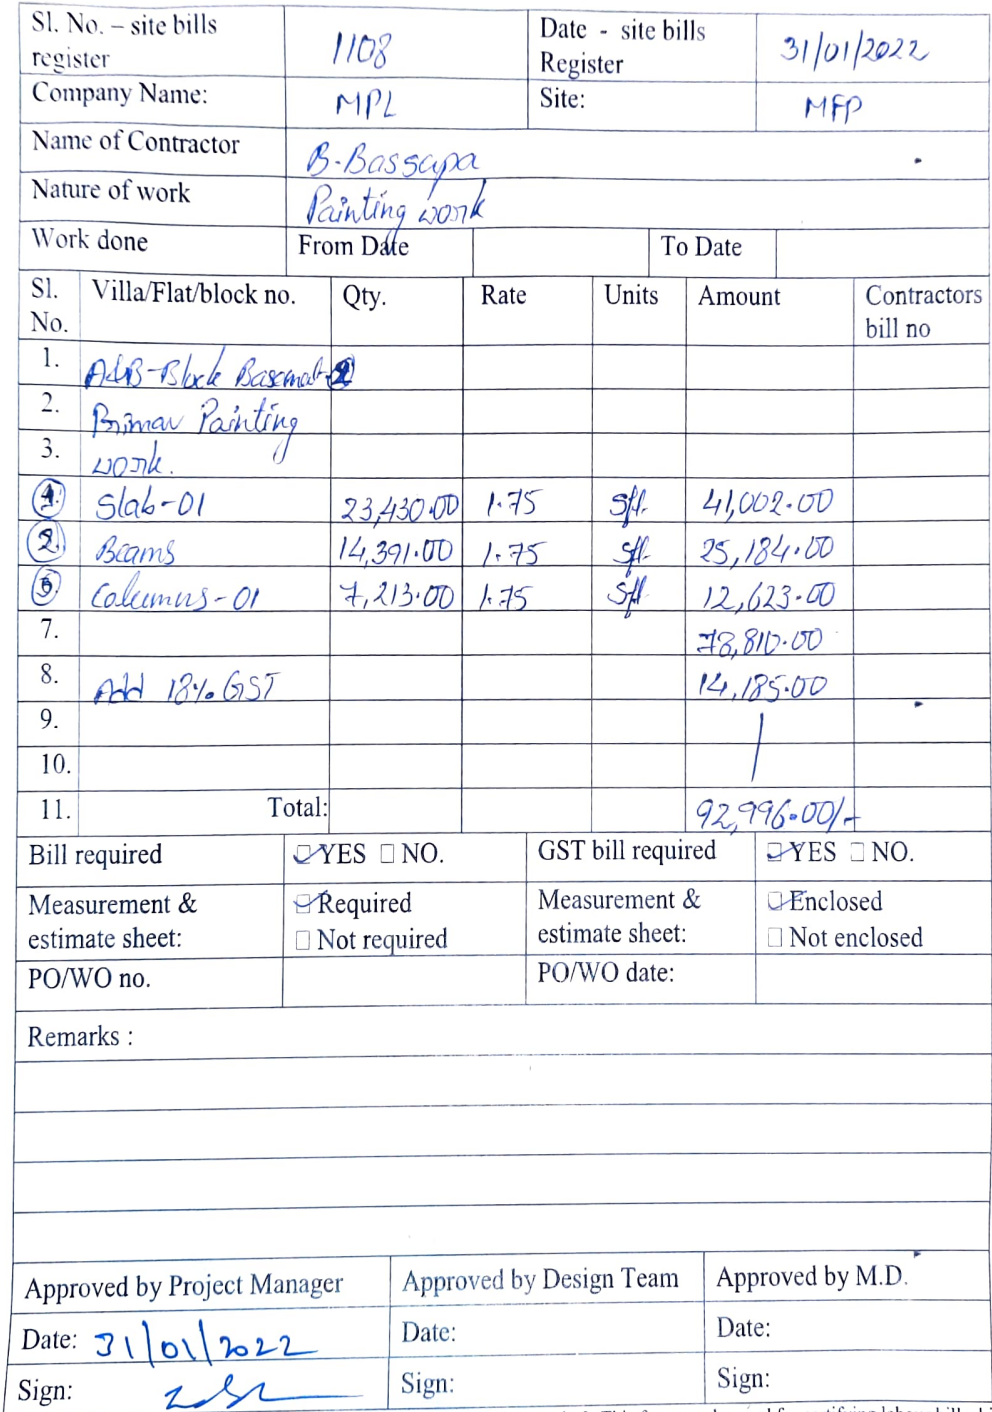 Sl. No. – site bills register 1108 Date - site bills Register 31/01/2022
Company Name: MPL Site: MFP
Name of Contractor B-Bassapa
Nature of work Painting work
Work done From Date To Date
Sl. No. Villa/Flat/block no. Qty. Rate Units Amount Contractors bill no
1. A&B-Block Basemat-2
2. Primar Painting
3. work.
4. Slab-01 23,430.00 1.75 sft. 41,002.00
2. Beams 14,391.00 1.75 sft. 25,184.00
Columns-01 7,213.00 1.75 sft 12,623.00
7. 78,810.00
8. Add 18% GST 14,185.00
9.
10.
11. Total: 92,996.00/-
Bill required YES NO. GST bill required YES NO.
Measurement & estimate sheet: Required Not required Measurement & estimate sheet: Enclosed Not enclosed
PO/WO no. PO/WO date:
Remarks :
Approved by Project Manager Approved by Design Team Approved by M.D.
Date: 31/01/2022 Date: Date:
Sign: Sign: Sign: